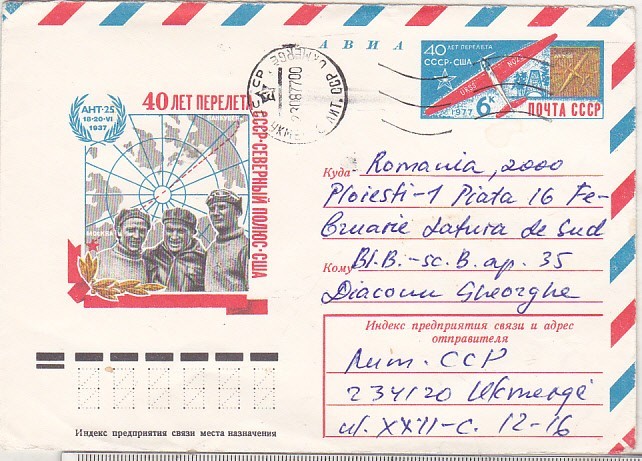 АВИА
40 ЛЕТ ПЕРЕЛЕТА
СССР-США
URSS NO25
1977
6К
ПОЧТА СССР
40 ЛЕТ ПЕРЕЛЕТА
СССР·СЕВЕРНЫЙ ПОЛЮС·США
АНТ-25
18-20·VI
1937
Куда
Romania, 2000
Ploiesti-1 Piata 16 Fe-
bruarie Latura de Sud
Bl. B. - sc. B. ap. 35
Кому
Diaconu Gheorghe
Индекс предприятия связи и адрес
отправителя
Лит. ССР
234120 Ukmergė
ul. XXII-c. 12-16
Индекс предприятия связи места назначения